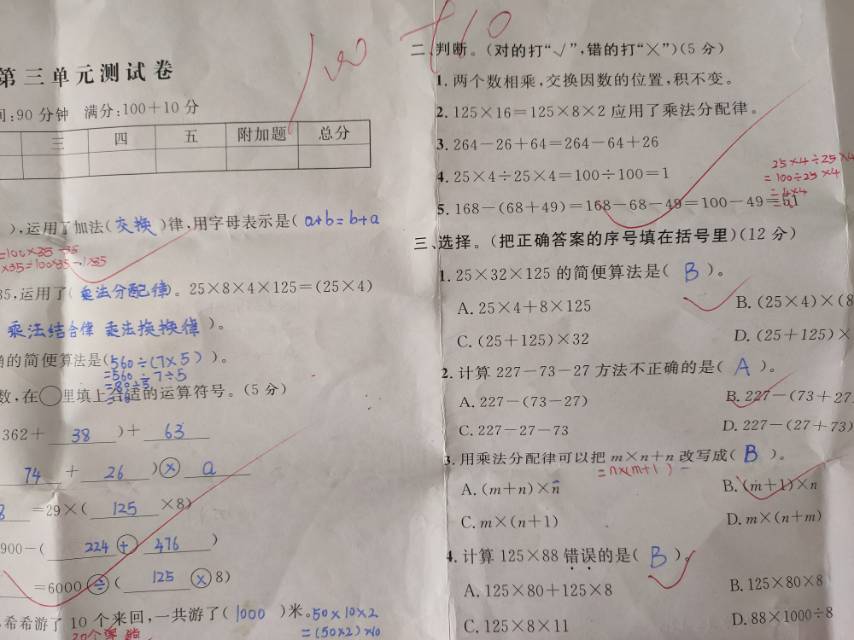 100 +10
第三单元测试卷
间:90分钟 满分:100+10分
三 四 五 附加题 总分
),运用了加法(交换)律,用字母表示是(a+b=b+a
35,运用了(乘法分配律)。25×8×4×125=(25×4)
乘法结合律 乘法换换律)。
的简便算法是(560÷(7×5))。
=560÷7÷5
=80÷5
数,在○里填上合适的运算符号。(5分)
362+ 38 )+ 63
74 + 26 )× a
8 =29×( 125 ×8)
900-( 224 + 476 )
=6000÷( 125 × 8)
希希游了10个来回,一共游了(1000)米。50×10×2
=(50×2)×10
二、判断。(对的打“√”,错的打“×”)(5分)
1.两个数相乘,交换因数的位置,积不变。
2.125×16=125×8×2应用了乘法分配律。
3.264-26+64=264-64+26
25×4÷25×4
4.25×4÷25×4=100÷100=1
=100÷25×4
=4×4
5.168-(68+49)=168-68-49=100-49=51
三、选择。(把正确答案的序号填在括号里)(12分)
1.25×32×125的简便算法是( B )。
A.25×4+8×125
B.(25×4)×(8
C.(25+125)×32
D.(25+125)×
2.计算227-73-27方法不正确的是( A )。
A.227-(73-27)
B.227-(73+27
C.227-27-73
D.227-(27+73)
3.用乘法分配律可以把m×n+n改写成( B )。
=n×(m+1)
A.(m+n)×n
B.(m+1)×n
C.m×(n+1)
D.m×(n+m)
4.计算125×88错误的是( B )。
A.125×80+125×8
B.125×80×8
C.125×8×11
D.88×1000÷8